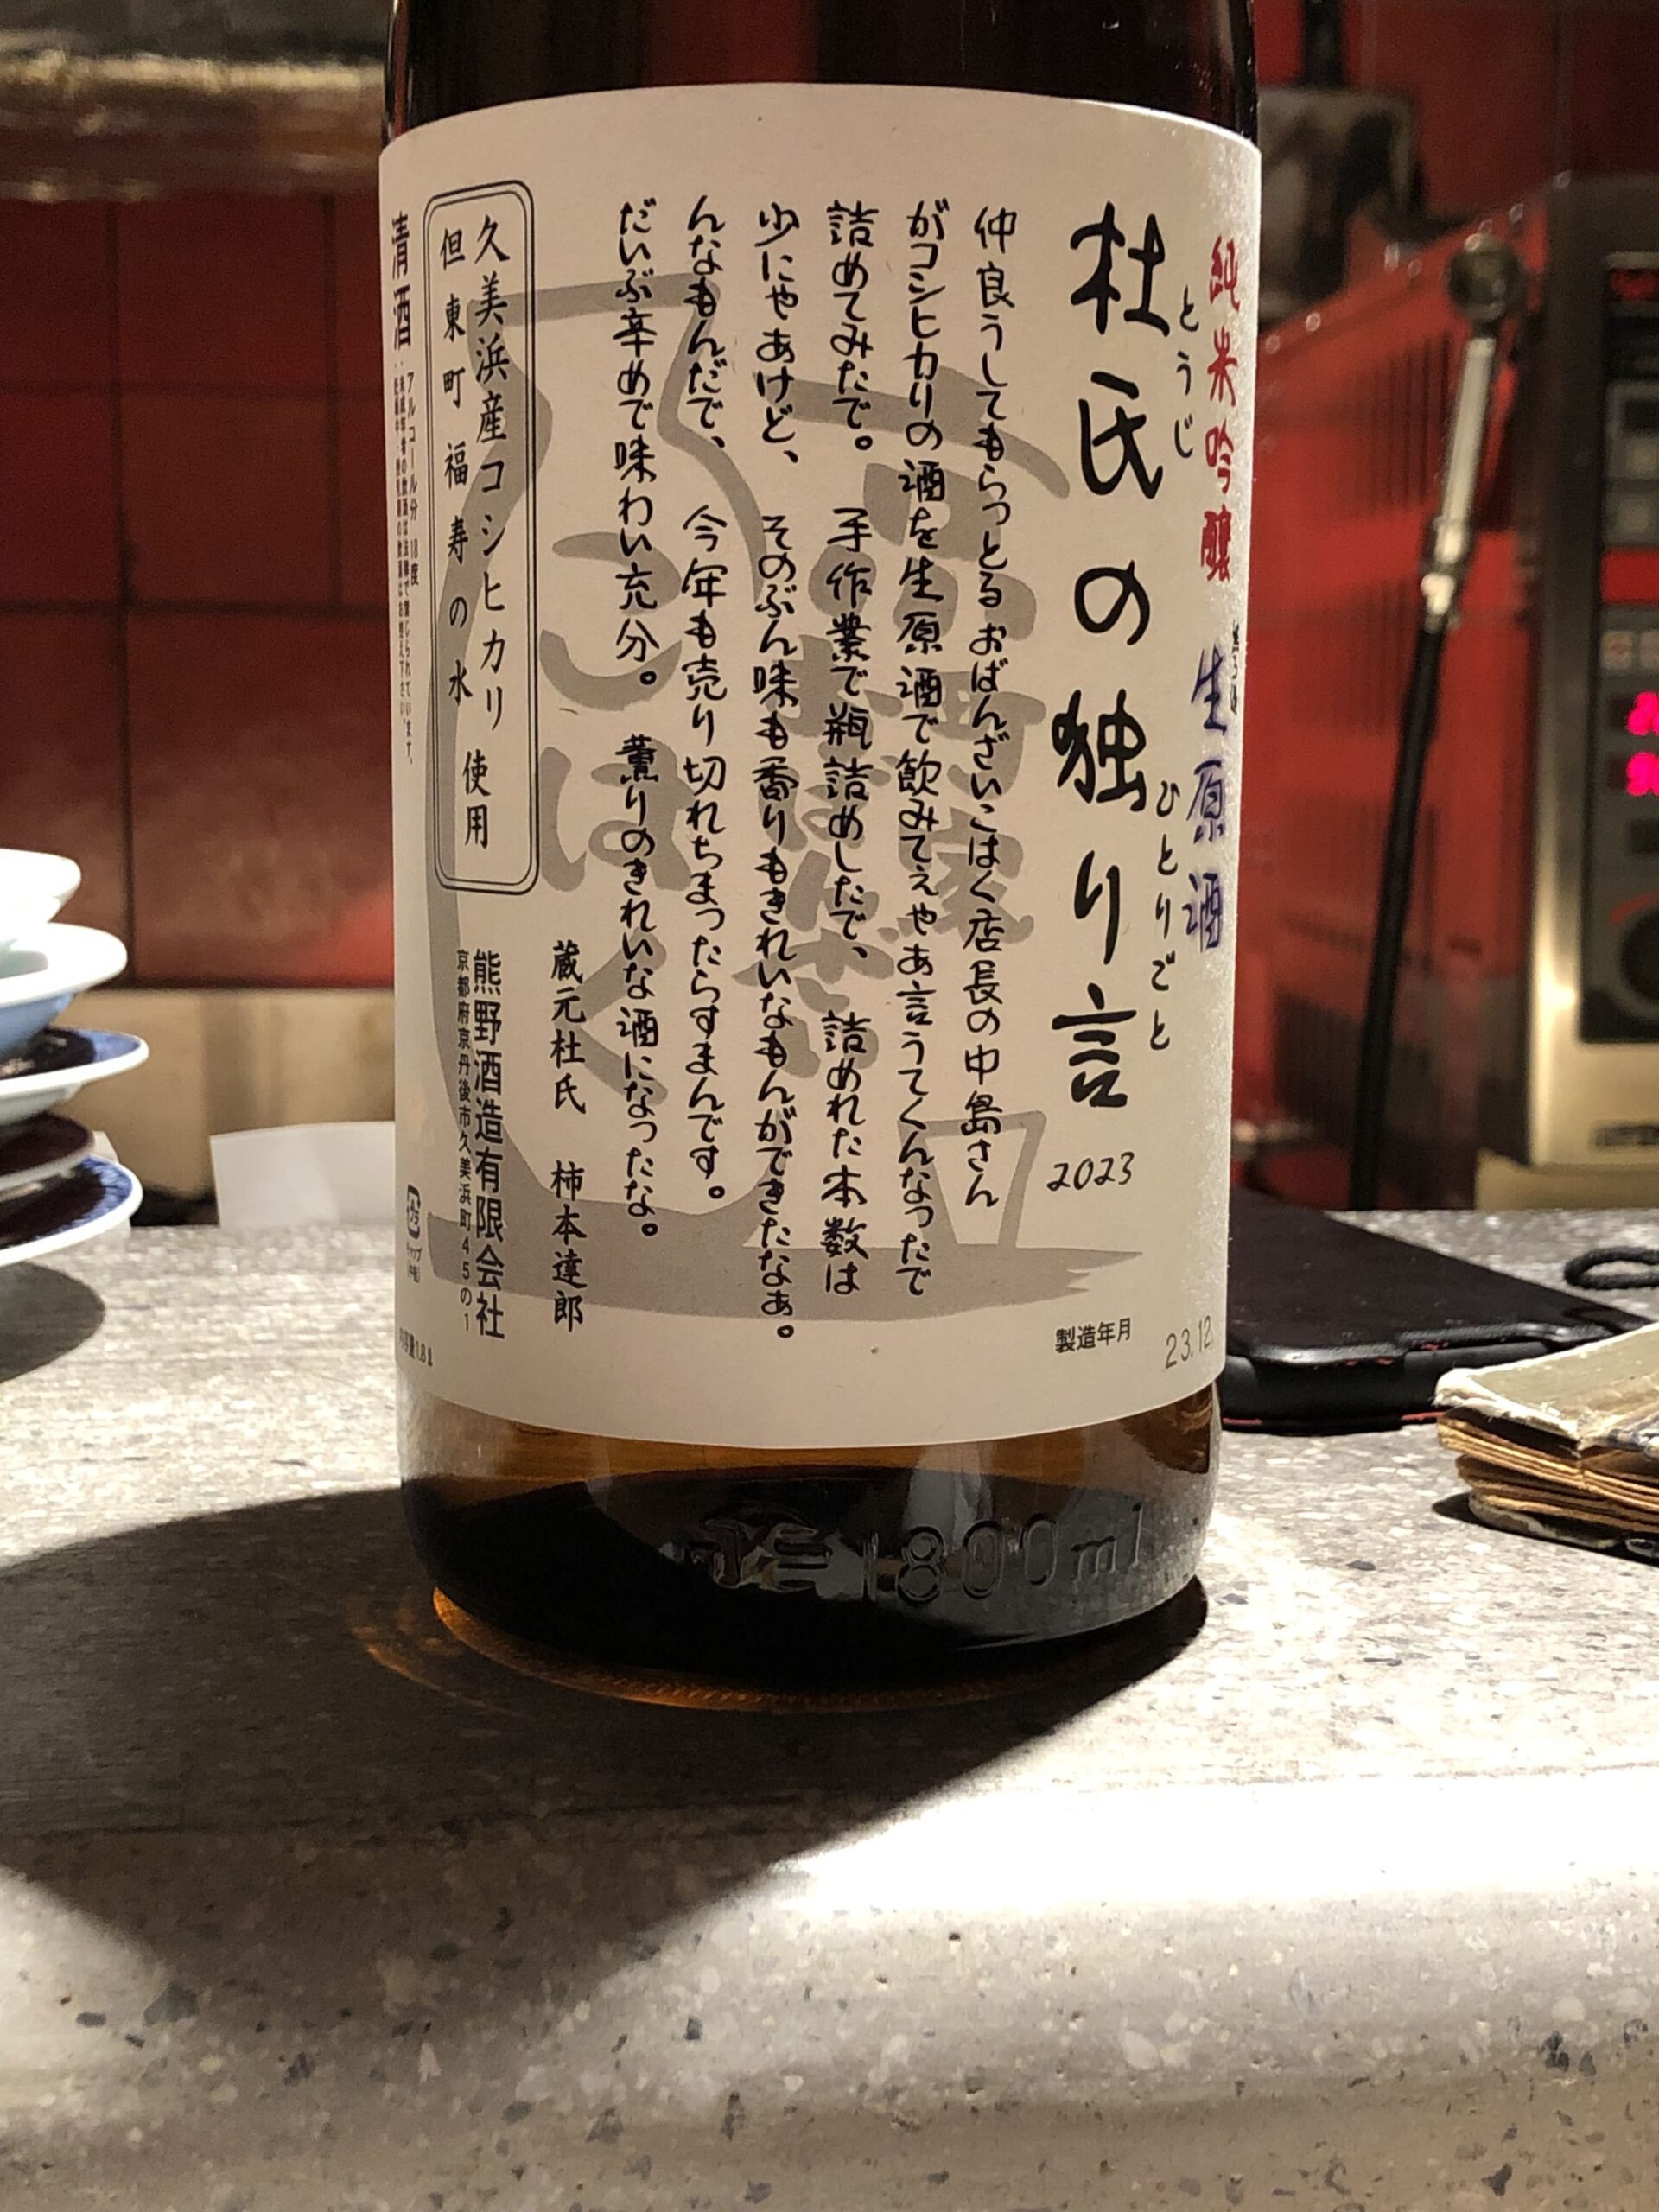 純米吟醸
生原酒
とうじ
ひとりごと
杜氏の独り言
2023
仲良うしてもらっとるおばんざいこはく店長の中島さん
がコシヒカリの酒を生原酒で飲みてぇやあ言うてくんなったで
詰めてみたで。 手作業で瓶詰めしたで、 詰めれた本数は
少にやあけど、 そのぶん味も香りもきれいなもんができたなぁ。
んなもんだで、 今年も売り切れちまったらすまんです。
だいぶ辛めで味わい充分。 薫りのきれいな酒になったな。
蔵元杜氏 柿本達郎
久美浜産コシヒカリ
但東町福寿の水
使用
熊野酒造有限会社
京都府京丹後市久美浜町45の1
清酒
アルコール分 18度
製造年月
23.12
おばんざい
こはく
1.8ℓ
1800ml